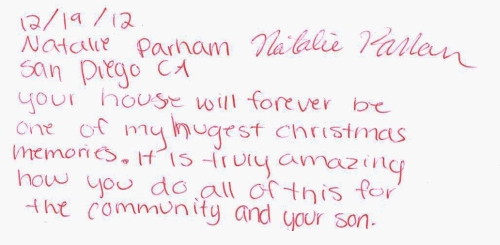 12/19/12
Natalie Parham Natalie Parham
San Diego CA
your house will forever be
one of my hugest christmas
memories. It is truly amazing
how you do all of this for
the community and your son.